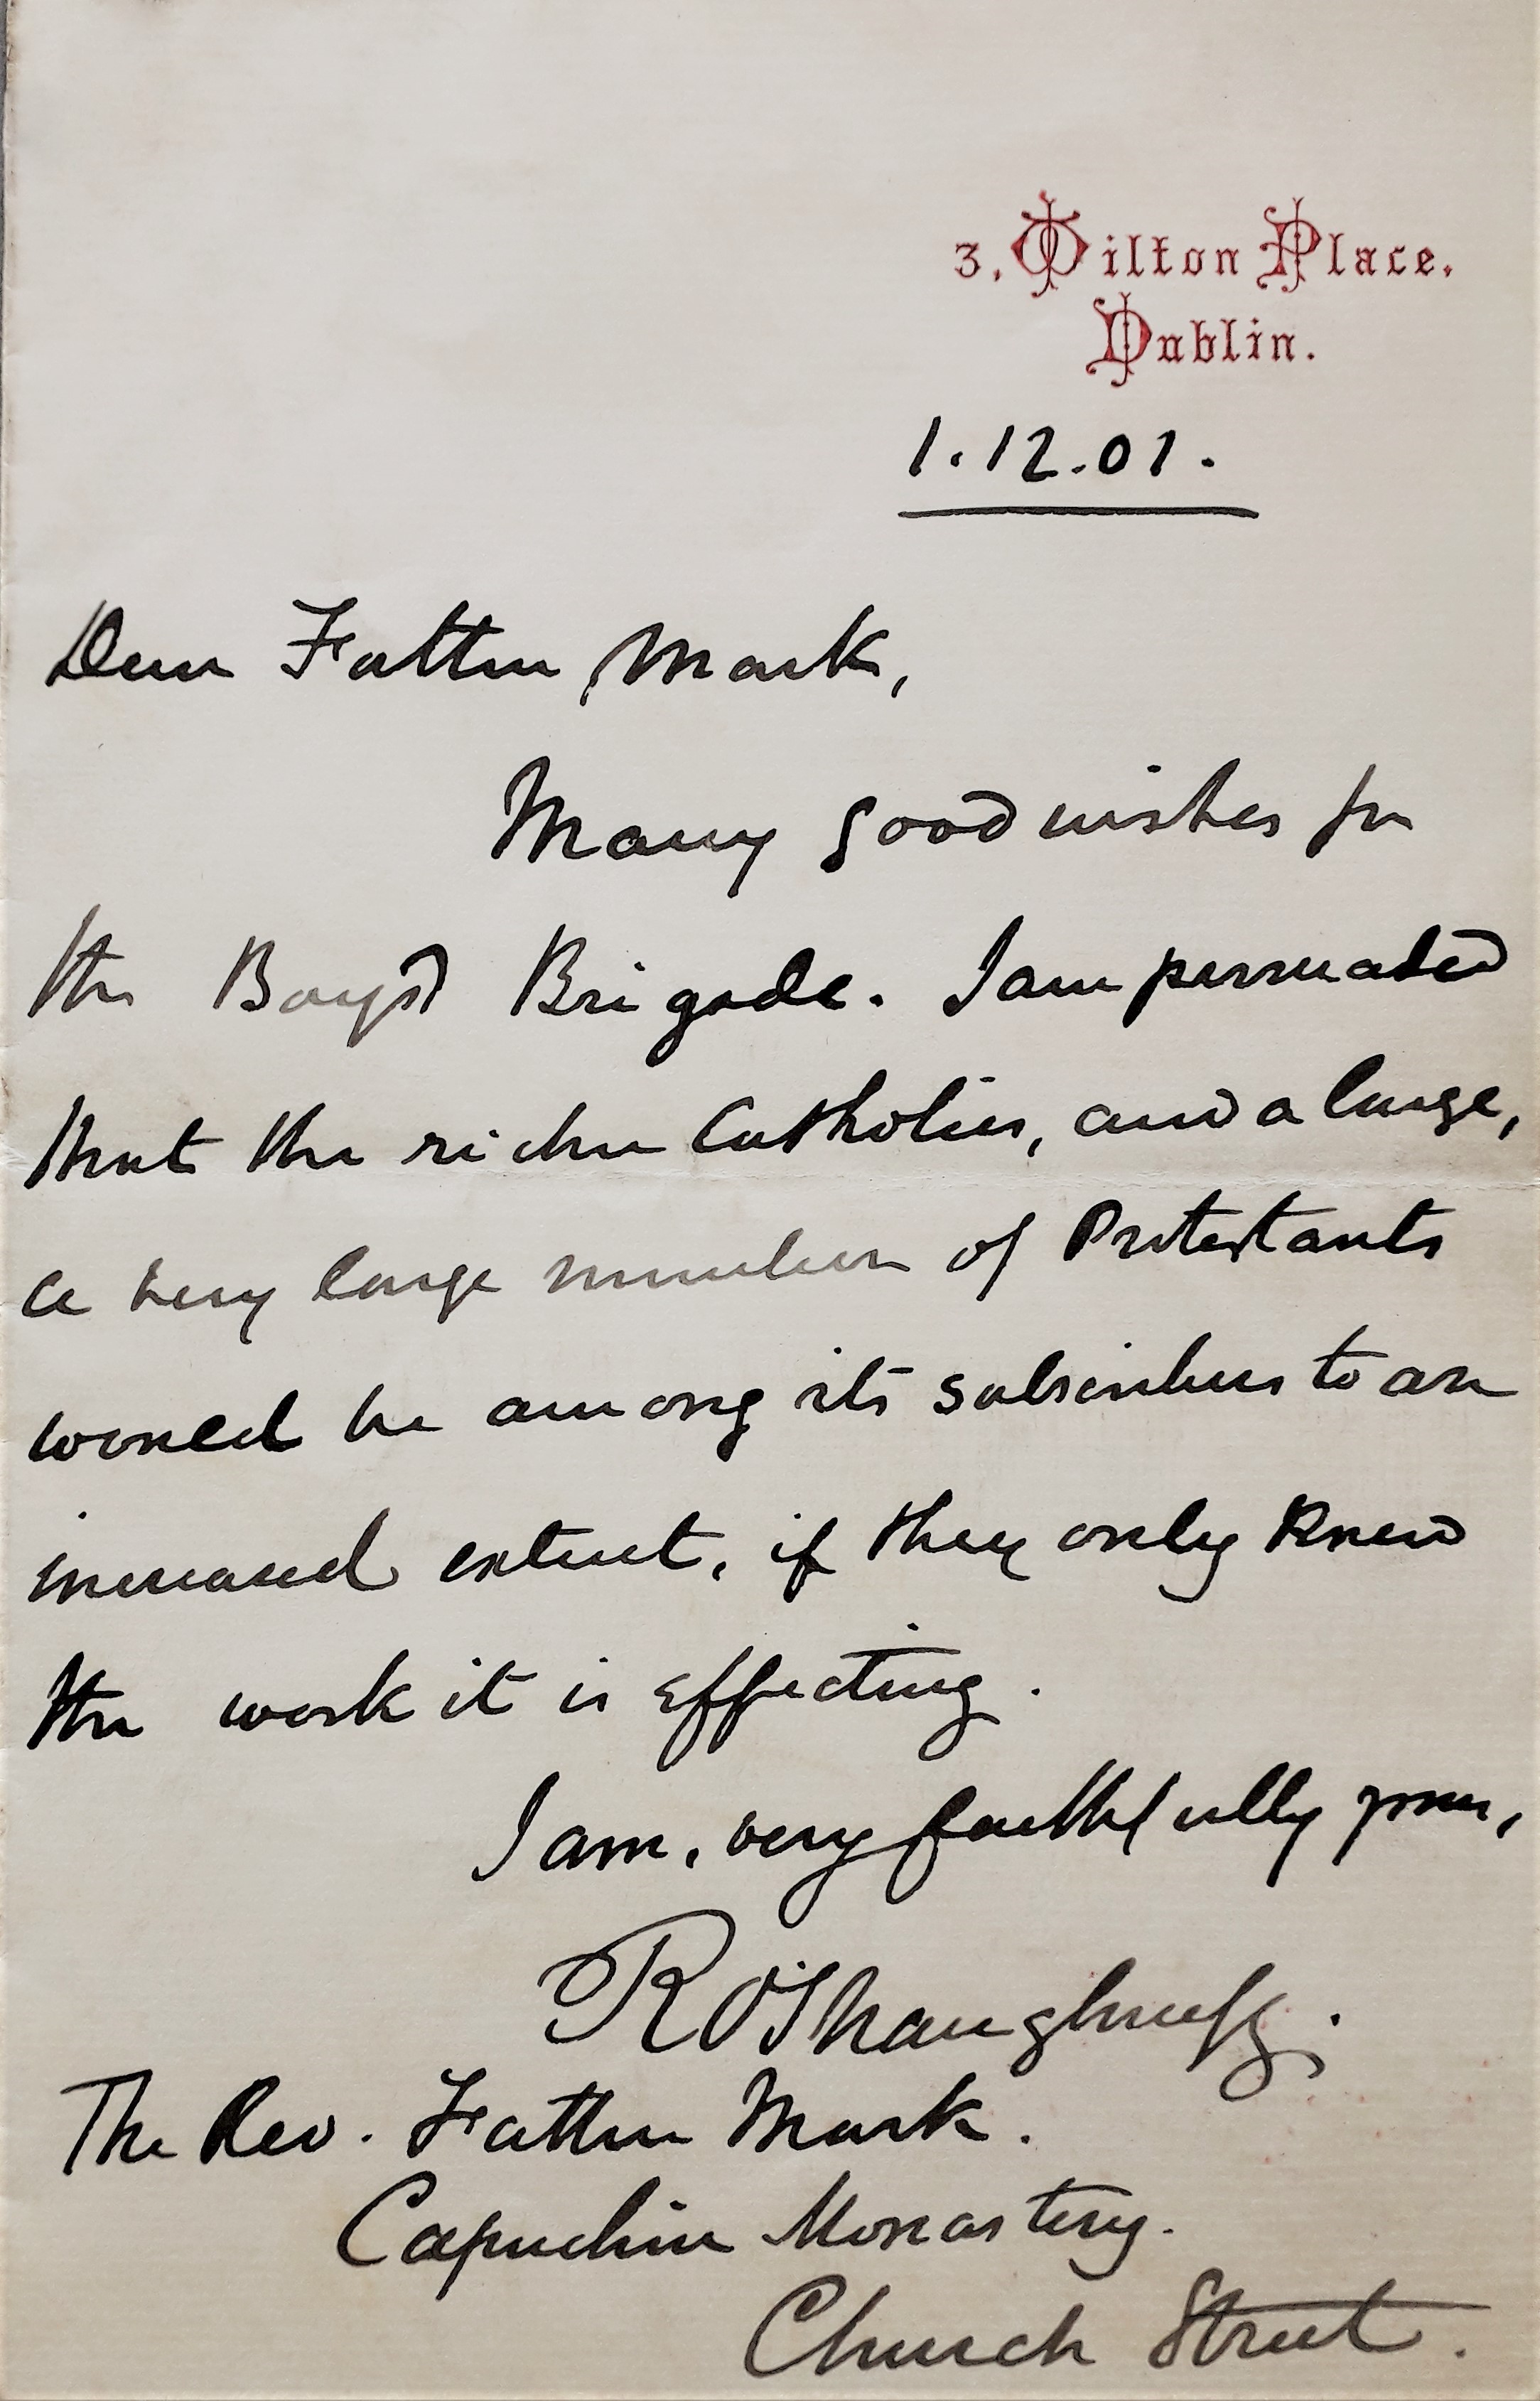 3. Wilton Place.
Dublin.
1.12.01.
Dear Father Mark,
Many good wishes for
the Boys' Brigade. I am persuaded
that the richer Catholics, and a large,
a very large number of Protestants
would be among its subscribers to an
increased extent, if they only knew
the work it is effecting.
I am, very faithfully yours,
R O'Shaughnessy.
The Rev. Father Mark.
Capuchin Monastery.
Church Street.